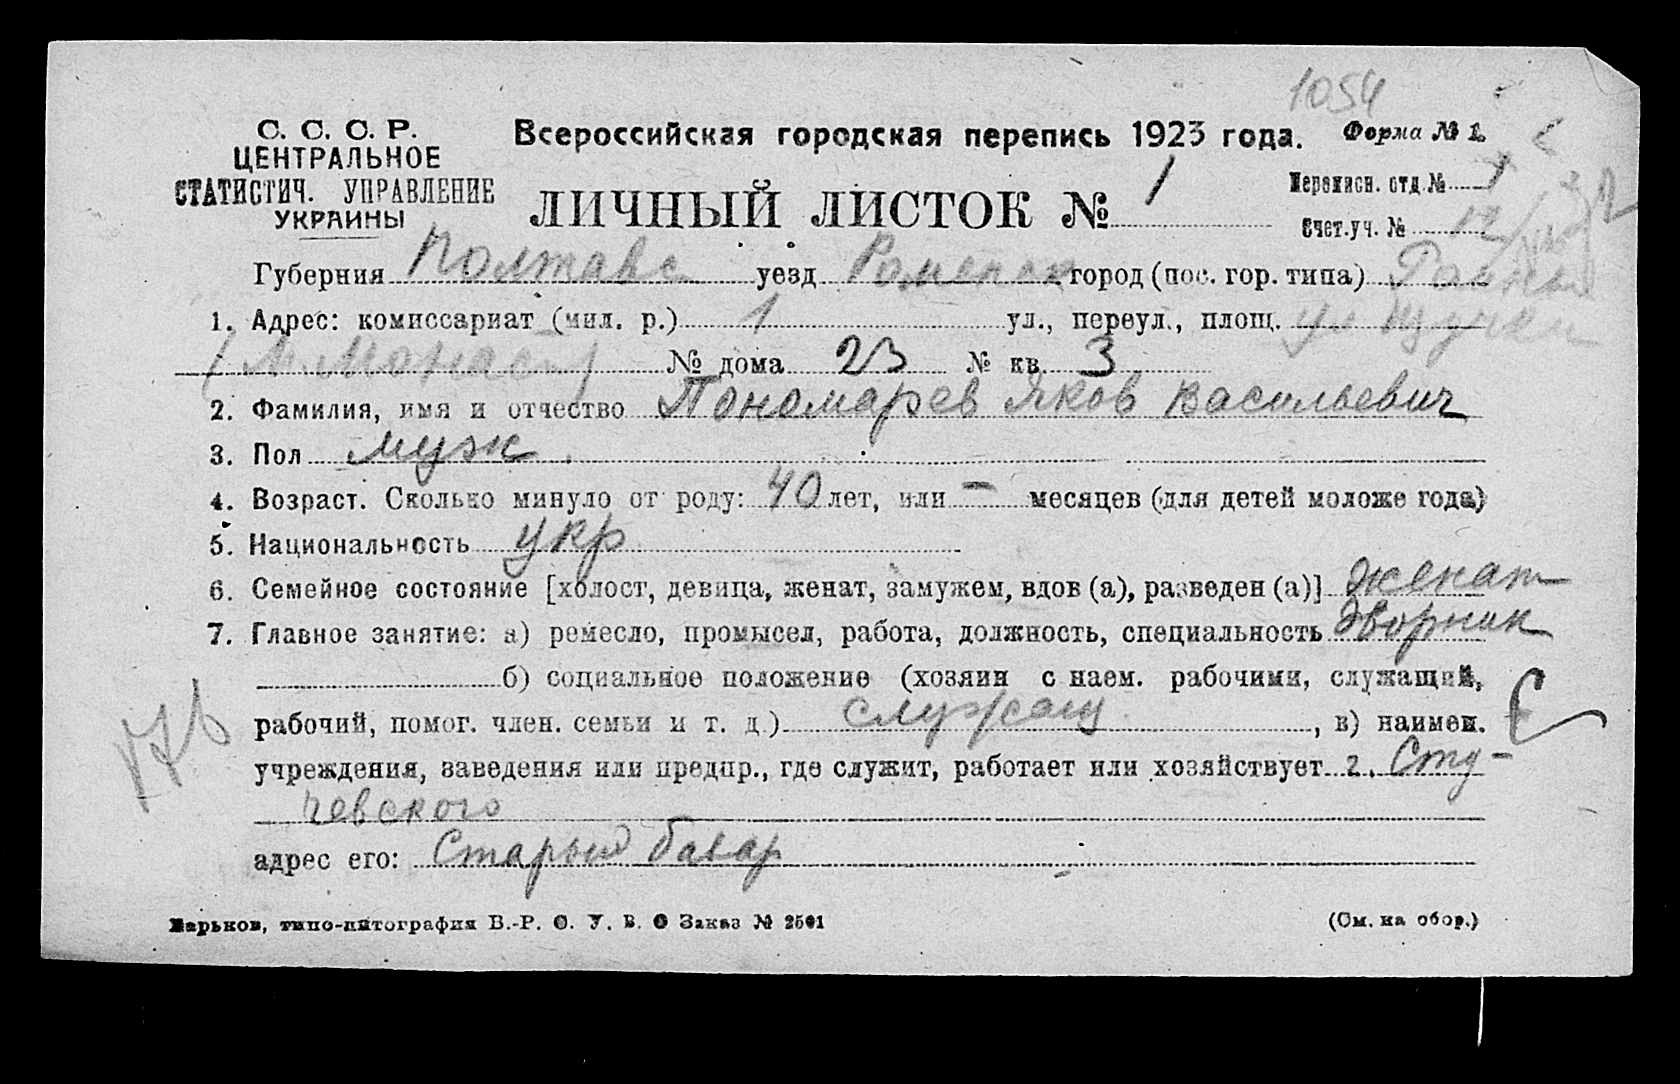 1054
С. С. С. Р.
ЦЕНТРАЛЬНОЕ
СТАТИСТИЧ. УПРАВЛЕНИЕ
УКРАИНЫ
Всероссийская городская перепись 1923 года.
Форма № 1.
ЛИЧНЫЙ ЛИСТОК № 1
Переписн. отд. № 1
Счет. уч. № 12
Губерния Полтавс уезд Роменск город (пос. гор. типа) Ромны
1. Адрес: комиссариат (мил. р.) 1 ул., переул., площ. ул
(М. Монаст) № дома 23 № кв. 3
2. Фамилия, имя и отчество Пономарев Яков Васильевич
3. Пол муж
4. Возраст. Сколько минуло от роду: 40 лет, или — месяцев (для детей моложе года)
5. Национальность укр
6. Семейное состояние [холост, девица, женат, замужем, вдов (а), разведен (а)] женат
7. Главное занятие: а) ремесло, промысел, работа, должность, специальность дворник
б) социальное положение (хозяин с наем. рабочими, служащий,
рабочий, помог. член. семьи и т. д.) служащ, в) наимен.
учреждения, заведения или предпр., где служит, работает или хозяйствует г. Сту-
чевского
адрес его: Старый базар
176
Харьков, типо-литография В.-Р. С. У. В. О Заказ № 2501
(См. на обор.)